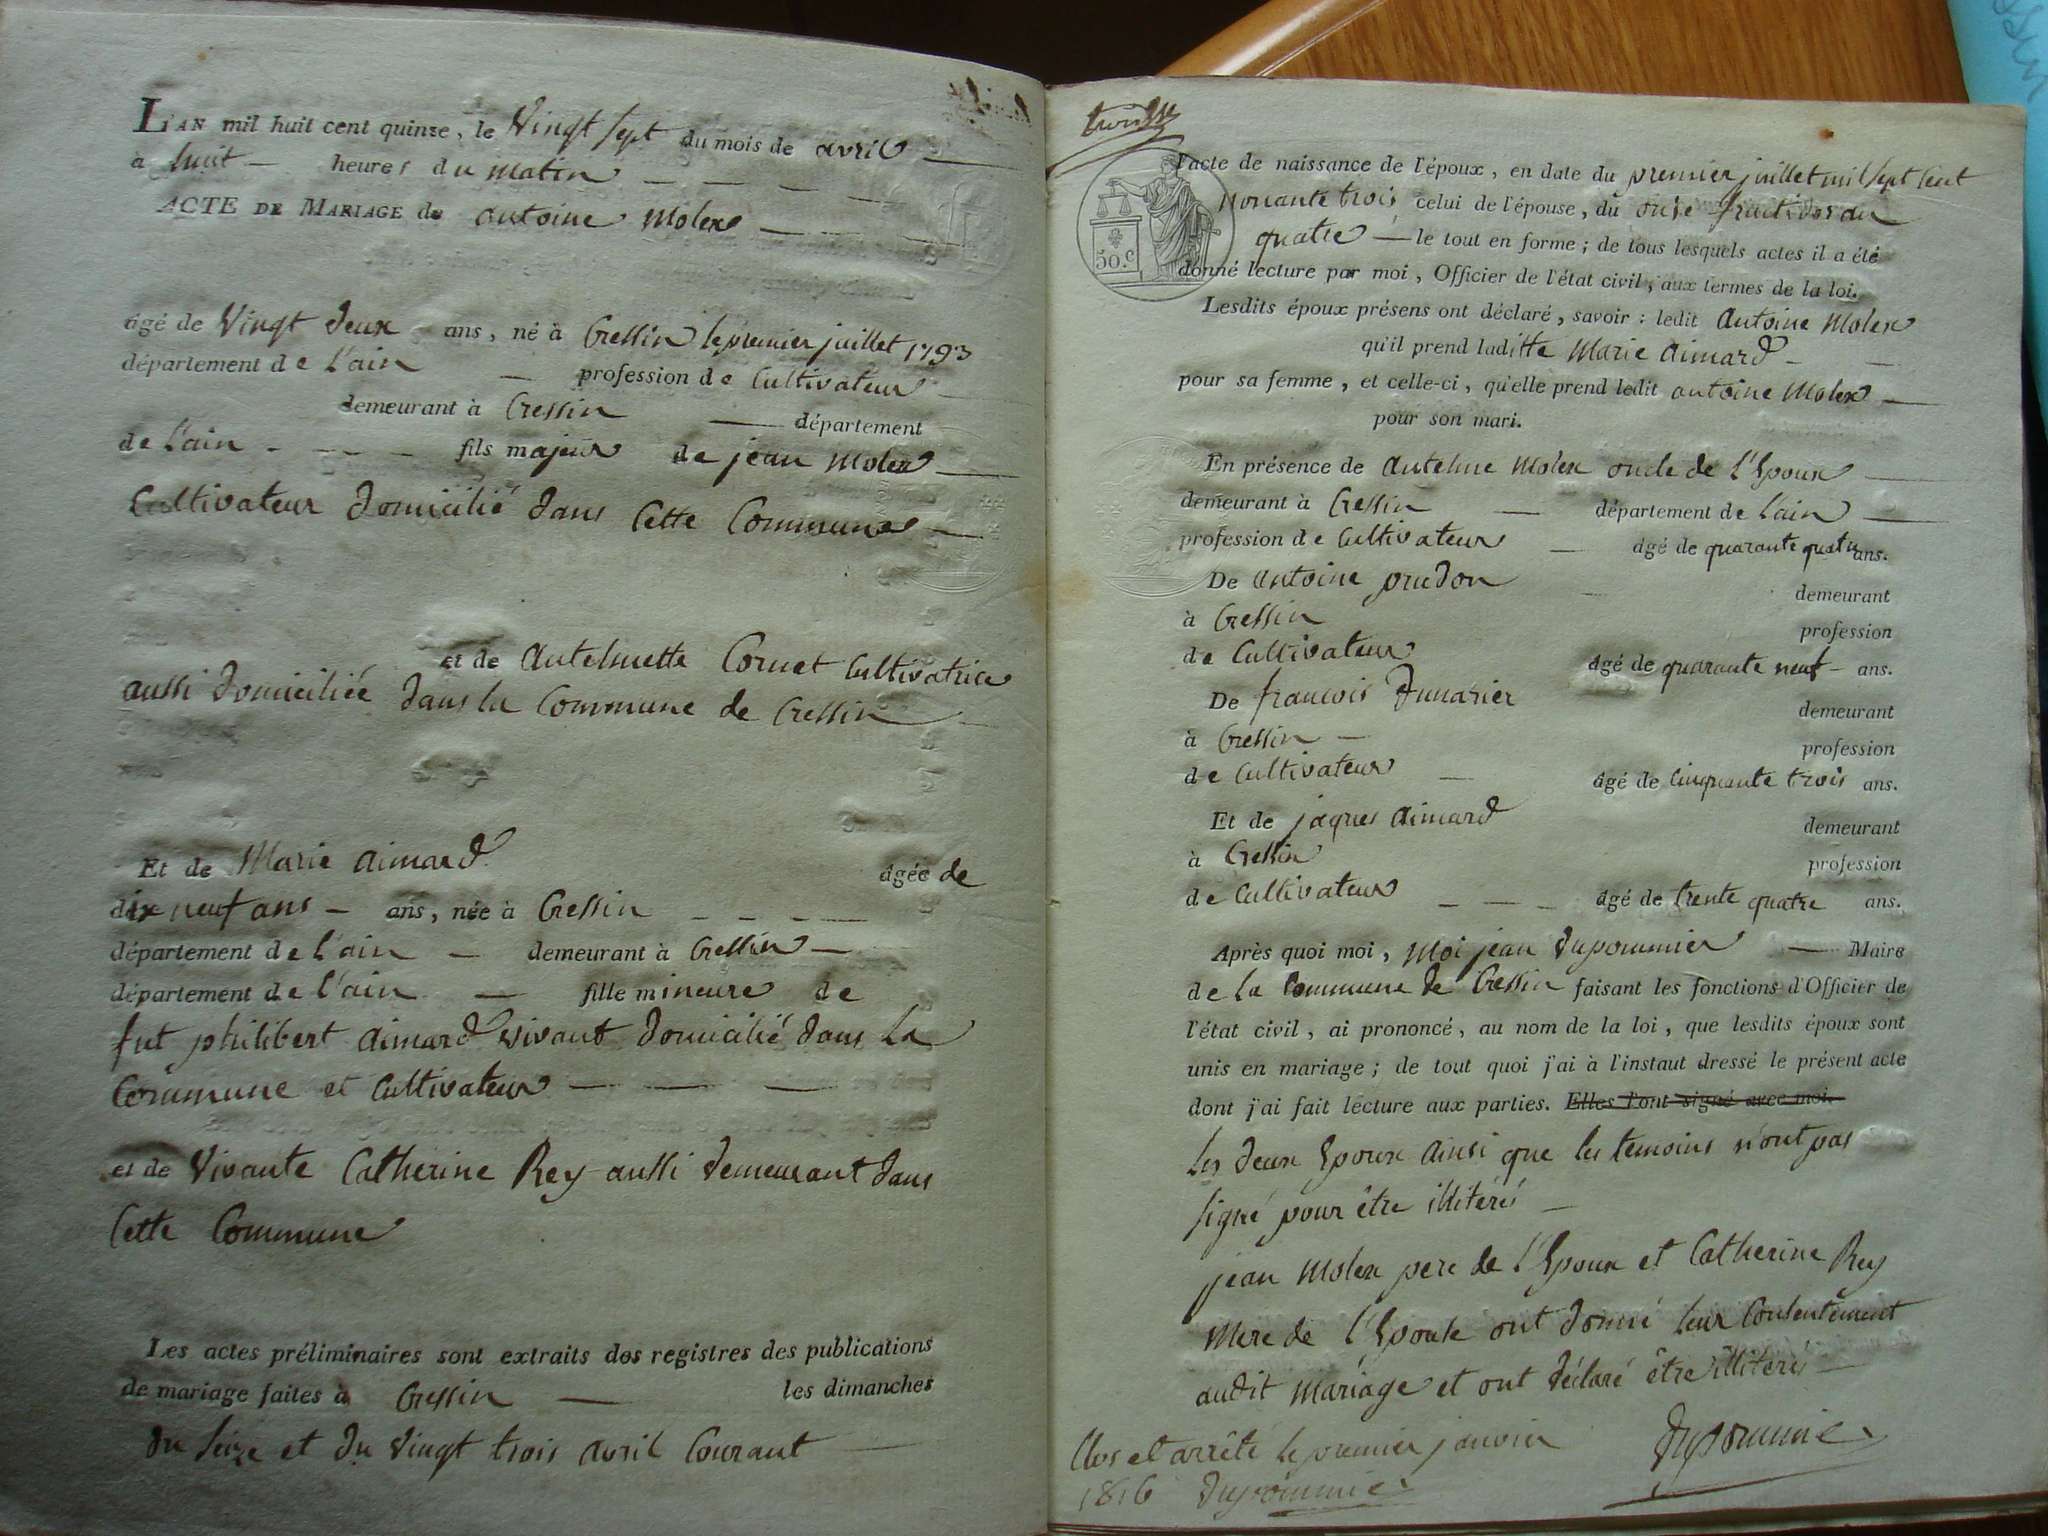 L'AN mil huit cent quinze, le Vingt sept du mois de avril
à huit heures du matin
ACTE DE MARIAGE de antoine Molex
âgé de Vingt deux ans, né à Cressin le premier juillet 1793
département de L'ain profession de Cultivateur
demeurant à Cressin département
de L'ain fils majeur de jean Molex
Cultivateur domicilié dans Cette Commune
et de Antelmette Cornet Cultivatrice
aussi domiciliée dans la Commune de Cressin
Et de Marie aimard âgée de
dix neuf ans ans, née à Cressin
département de L'ain demeurant à Cressin
département de L'ain fille mineure de
fut philibert aimard vivant domicilié dans La
Commune et Cultivateur
et de Vivante Catherine Rey aussi demeurant dans
Cette Commune
Les actes préliminaires sont extraits des registres des publications
de mariage faites à Cressin les dimanches
du seize et du vingt trois avril Courant
l'acte de naissance de l'époux, en date du premier juillet mil sept cent
nonante trois celui de l'épouse, du onse fructidor an
50.c
quatre le tout en forme; de tous lesquels actes il a été
donné lecture par moi, Officier de l'état civil, aux termes de la loi.
Lesdits époux présens ont déclaré, savoir: ledit Antoine Molex
qu'il prend laditte Marie aimard
pour sa femme, et celle-ci, qu'elle prend ledit antoine Molex
pour son mari.
En présence de antelme Molex oncle de l'Epoux
demeurant à Cressin département de L'ain
profession de Cultivateur âgé de quarante quatre ans.
De antoine prudon demeurant
à Cressin profession
de Cultivateur âgé de quarante neuf ans.
De francois demeurant
à Cressin profession
de Cultivateur âgé de cinquante trois ans.
Et de jaques aimard demeurant
à Cressin profession
de Cultivateur âgé de trente quatre ans.
Après quoi moi, Moi jean Dupommier Maire
de La Commune de Cressin faisant les fonctions d'Officier de
l'état civil, ai prononcé, au nom de la loi, que lesdits époux sont
unis en mariage; de tout quoi j'ai à l'instant dressé le présent acte
dont j'ai fait lecture aux parties. Elles l'ont signé avec moi.
Les deux Epoux ainsi que les temoins n'ont pas
signé pour être illitérés
jean Molex pere de l'Epoux et Catherine Rey
Mere de l'Epouse ont donné leur Consentement
audit Mariage et ont déclaré être illiterés
Clos et arrêté le premier janvier Dupommier
1816 Dupommier